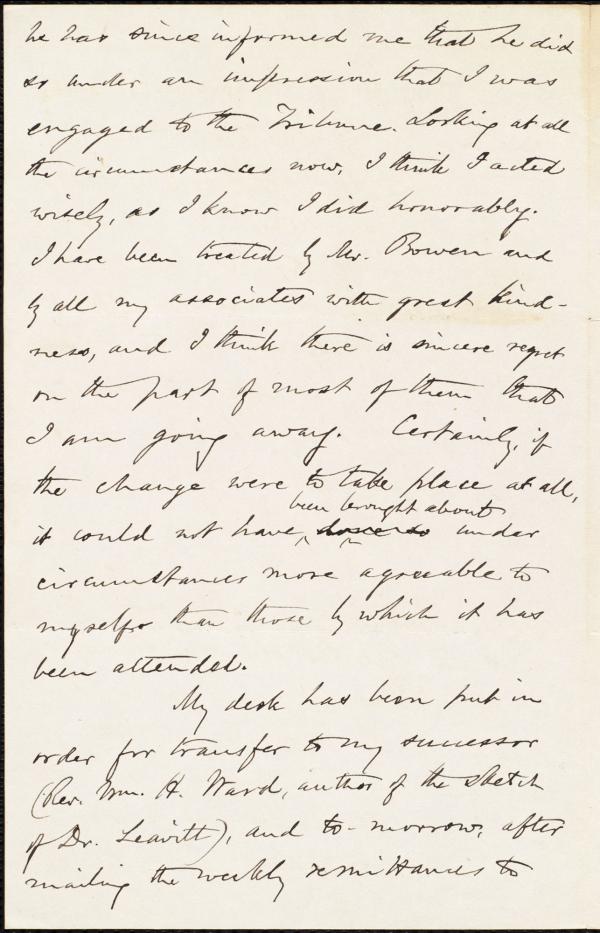 he has since informed me that he did
so under an impression that I was
engaged to the Tribune. Looking at all
the circumstances now, I think I acted
wisely, as I know I did honorably.
I have been treated by Mr. Bowen and
by all my associates with great kind-
ness, and I think there is sincere regret
on the part of most of them that
I am going away. Certainly, if
the change were to take place at all,
been brought about
it could not have under
circumstances more agreeable to
myself than those by which it has
been attended.
My desk has been put in
order for transfer to my successor
(Rev. Wm. H. Ward, author of the sketch
of Dr. Leavitt), and to-morrow, after
mailing the weekly remittances to